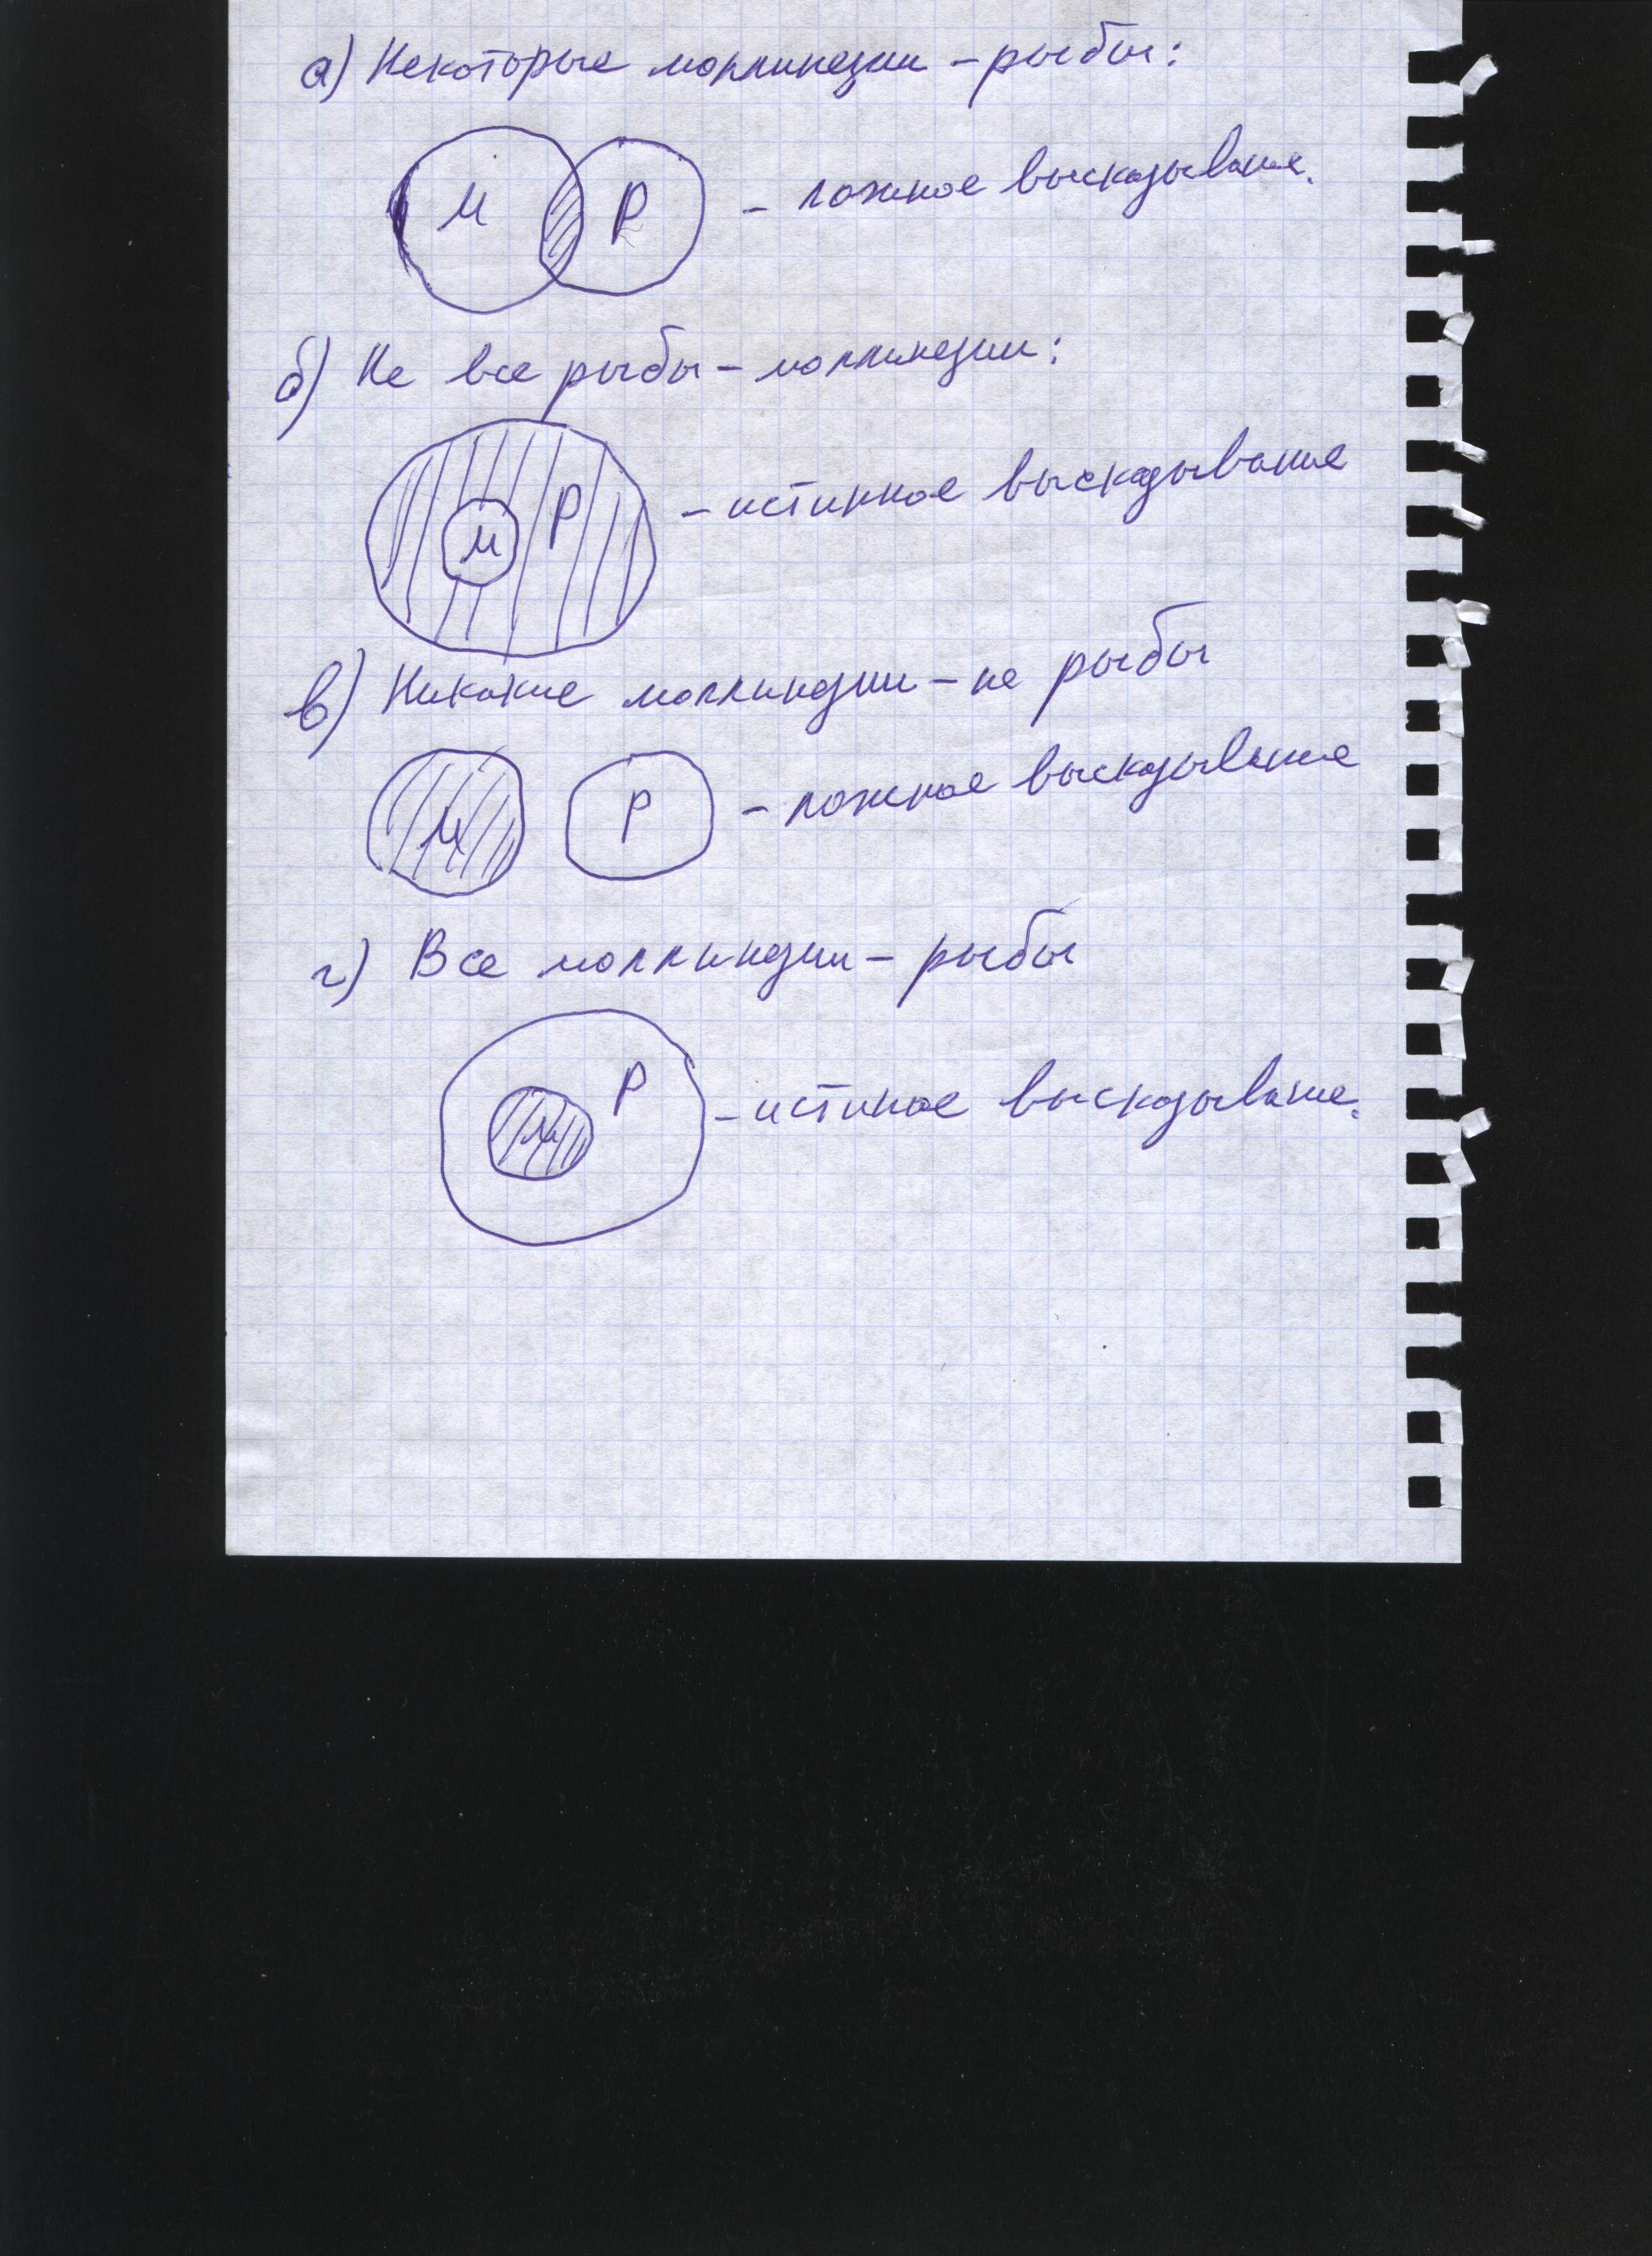 а) Некоторые моллинезии – рыбы:
М Р – ложное высказывание.
б) Не все рыбы – моллинезии:
М Р – истинное высказывание
в) Никакие моллинезии – не рыбы
М Р – ложное высказывание
г) Все моллинезии – рыбы
М Р – истинное высказывание.